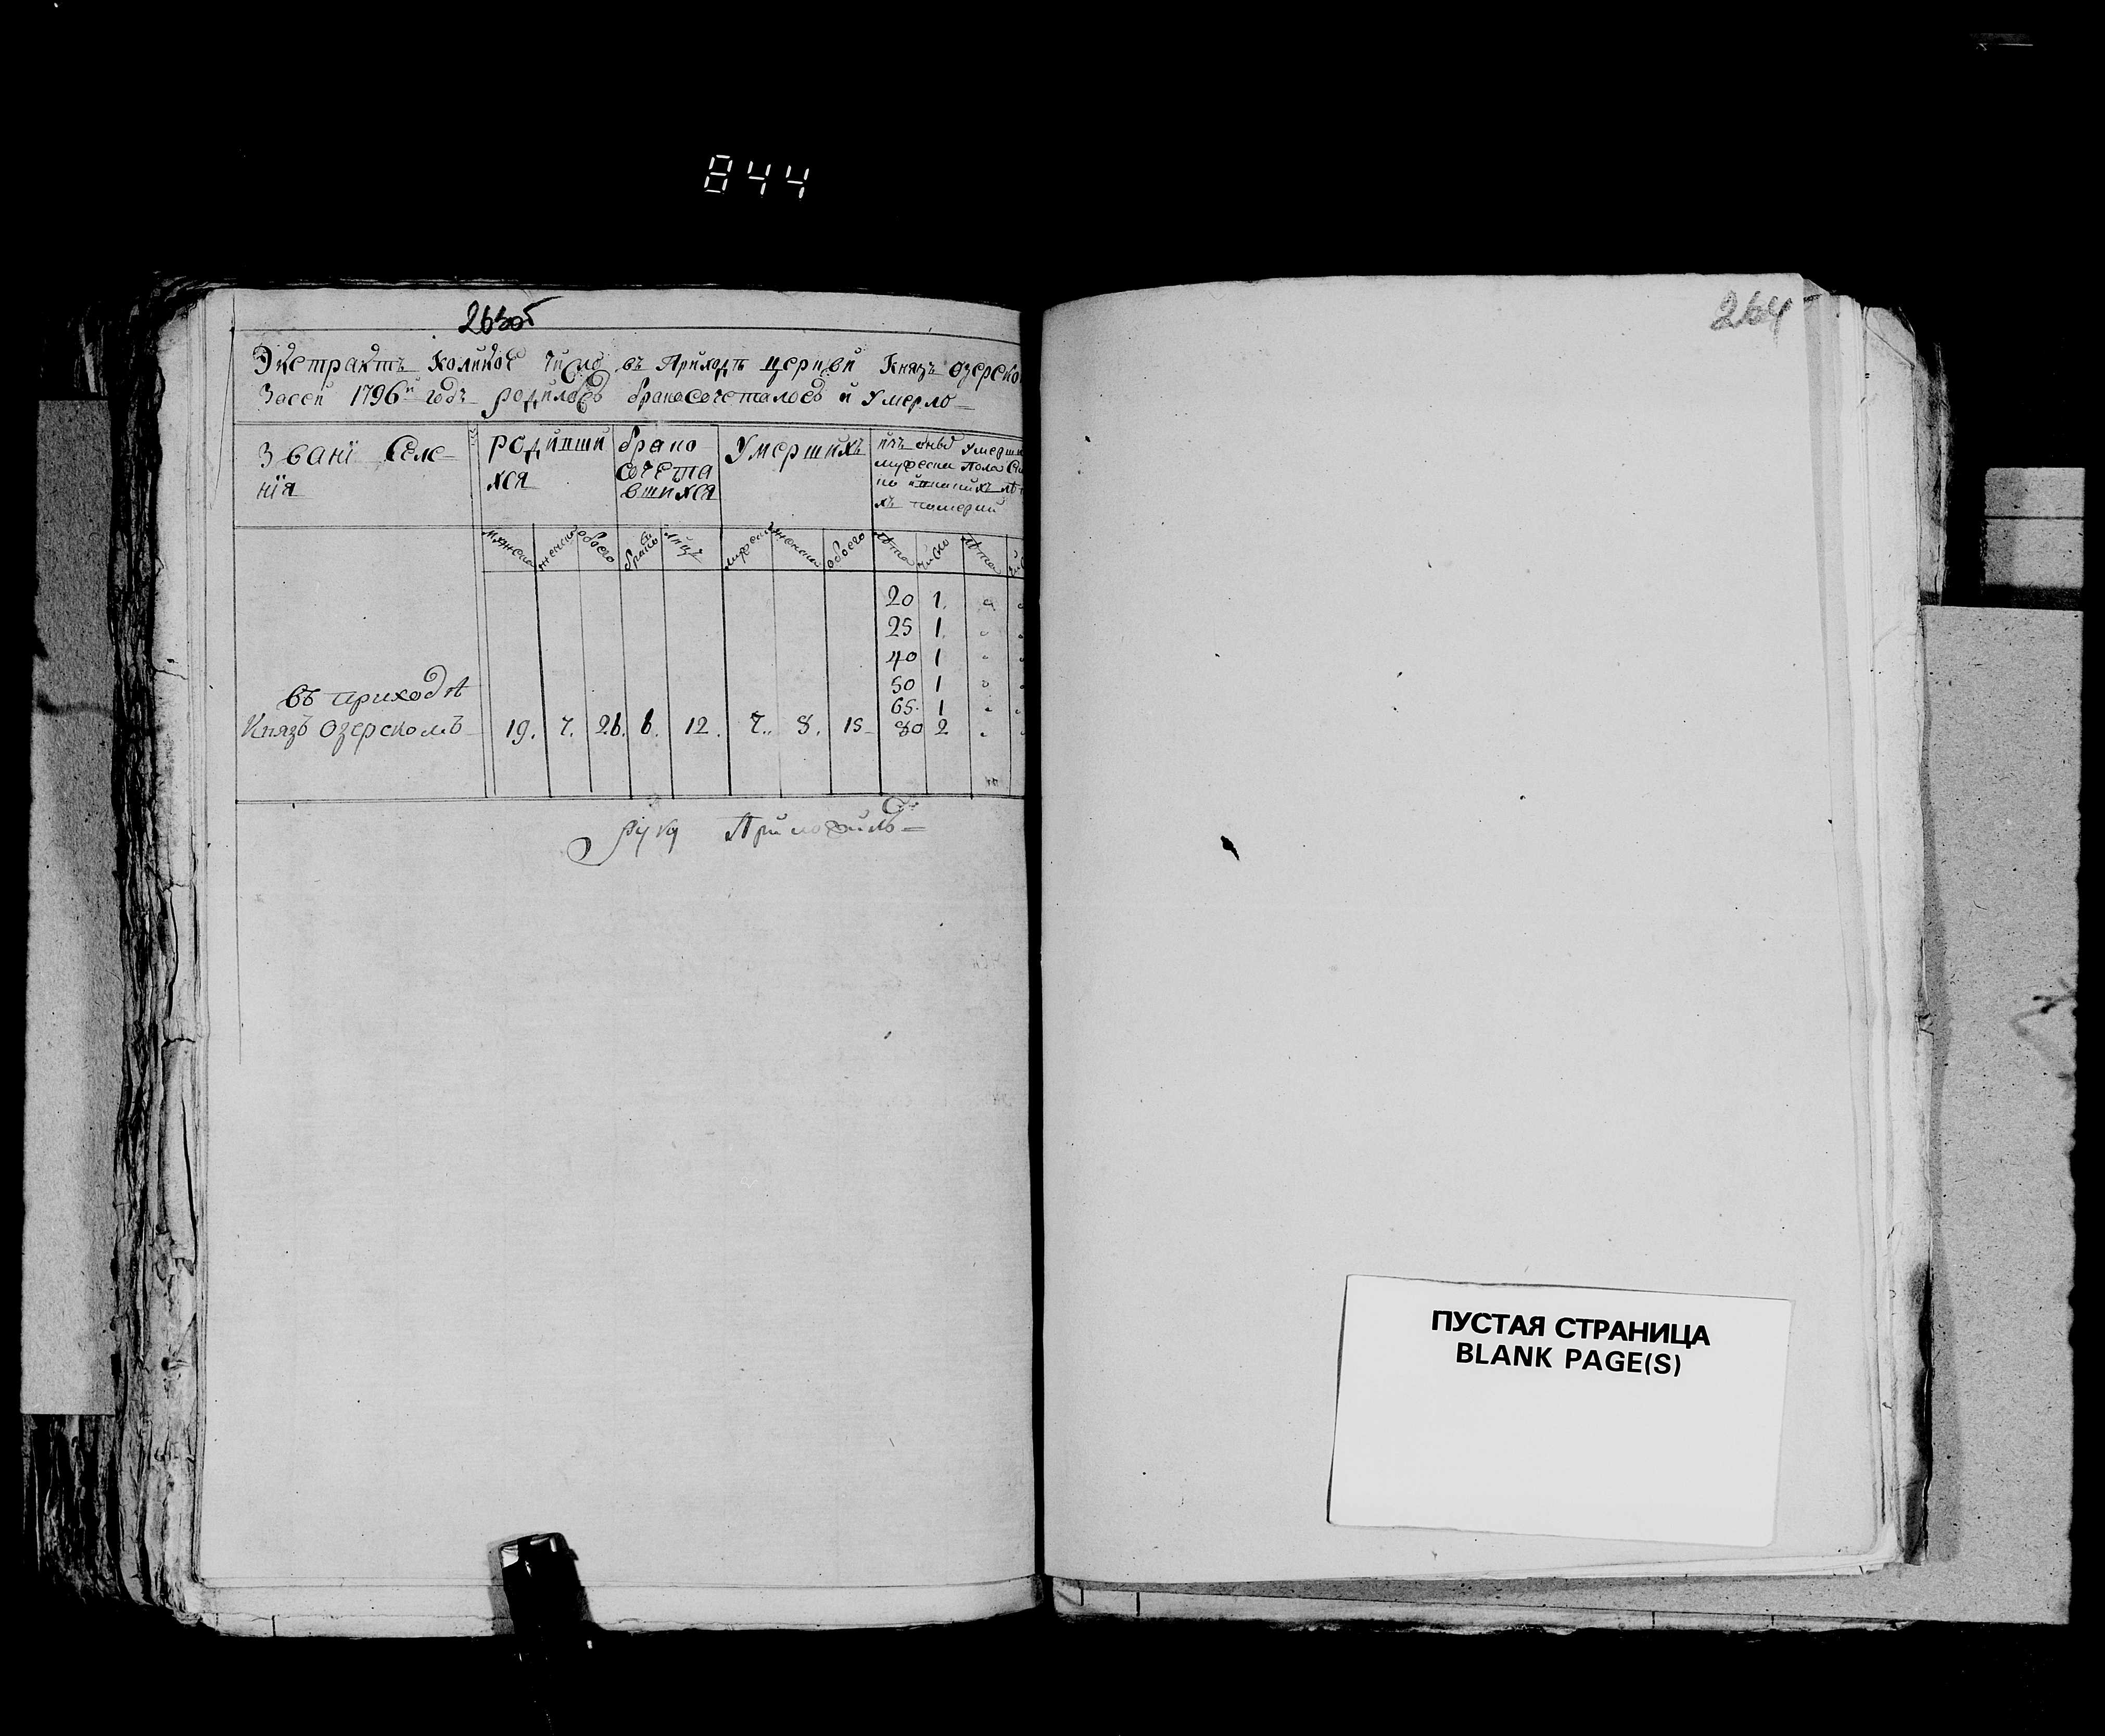 844
263об
Экстрактъ Коликое число въ Приходѣ церкви Князь озерско
Засей 1796й годъ родилось бракосочеталось и Умерло
Званї Селе-
нїя
родивши
хся
брако
сочета
вшихся
Умершихъ
изъ оныхъ Умерши
мужеска Пола
по
хъ померли
мужеска женска обоего браковъ лицъ мужеска женска обоего лѣта число лѣта
20 1.
25 1.
40 1
50 1
65. 1
въ приходѣ
Князь озерскомъ 19. 7. 26. 6. 12. 7. 8. 15 80 2
руку Приложилъ
264
ПУСТАЯ СТРАНИЦА
BLANK PAGE(S)